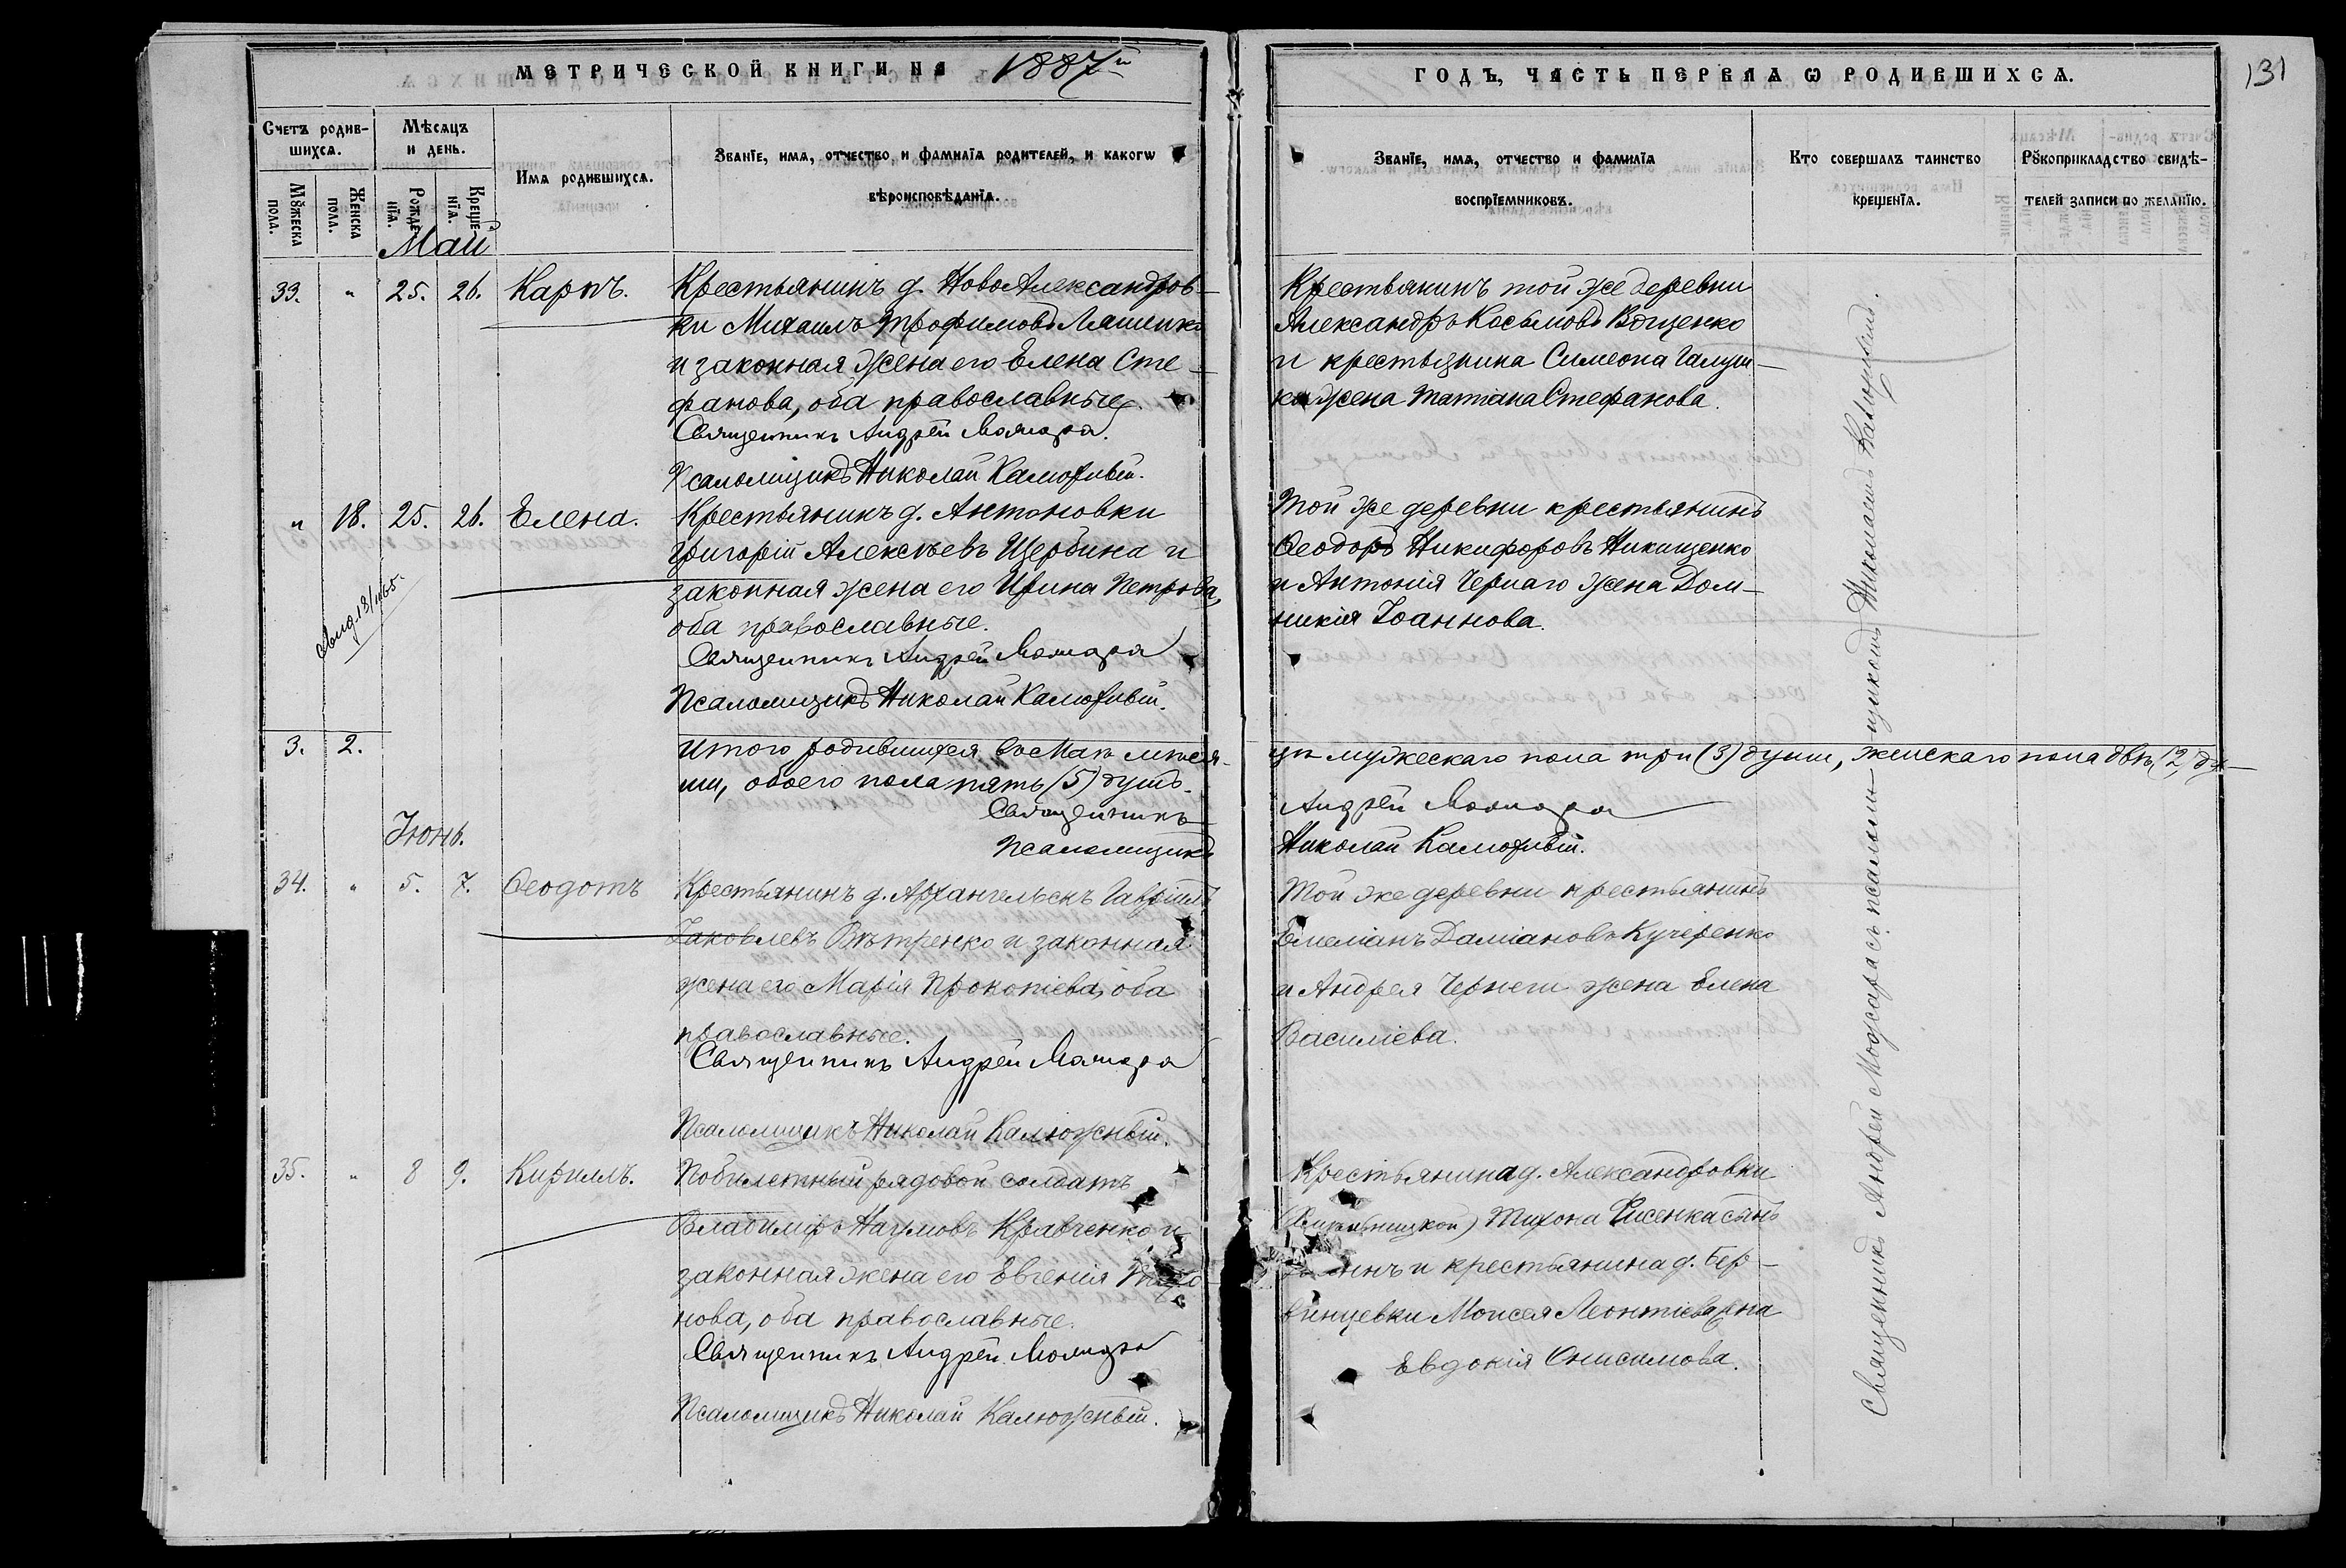 МЕТРИЧЕСКОЙ КНИГИ НА 1887й
ГОДЪ, ЧАСТЬ ПЕРВАЯ Ѡ РОДИВШИХСѦ.
131
Счетъ родив-
шихсѧ.
Мѣсѧцъ
и день.
Мꙋжеска
пола.
Женска
пола.
Рожде
нїѧ.
Креще
нїѧ.
Имѧ родившихсѧ.
Званїе, имѧ, отчество, и фамилїѧ родителей, и какогѡ
вѣроисповѣданїѧ.
Званїе, имѧ, отчество и фамилїѧ
воспрїемниковъ.
Кто совершалъ таинство
крещенїѧ.
Рꙋкоприкладство свидѣ-
телей записи по желанїю.
Май
33. " 25. 26. Карпъ.
Крестьянинъ д. НовоАлександров-
ки Михаилъ Трофимовъ Ляшенко
и законная жена его Елена Сте-
фанова, оба православные.
Священникъ Андрей Можара.
Псаломщикъ Николай Калюжный.
Крестьянинъ той же деревни
Александръ Косьмовъ
и крестьянина Симеона Галуш-
ки жена Татіана Стефанова.
" 18. 25. 26. Елена.
Крестьянинъ д. Антоновки
Григорій Алексѣевъ Щербина и
законная жена его Ирина Петрова,
оба православные.
Священникъ Андрей Можара
Псаломщикъ Николай Калюжный.
Той же деревни крестьянинъ
Ѳеодоръ Никифоровъ Никищенко
и Антонія Чернаго жена Дом-
никія Іоаннова.
3. 2.
Итого родившихся въ Маѣ мѣся-
цѣ мужескаго пола три (3) души, женскаго пола двѣ (2) ду-
ши, обоего пола пять (5) душъ.
Священникъ Андрей Можара
Псаломщикъ Николай Калюжный.
Іюнь.
34. " 5. 7. Ѳеодотъ
Крестьянинъ д. Архангельскъ Гавріилъ
Іаковлевъ Вѣтренко и законная
жена его Марія Прокопіева, оба
православные.
Священникъ Андрей Можара
Псаломщикъ Николай Калюжный.
Той же деревни крестьянинъ
Емеліанъ Даміановъ Кучеренко
и Андрея Чернеги жена Елена
Василіева.
35. " 8 9. Кириллъ.
Побилетный рядовой солдатъ
Владиміръ Наумовъ Кравченко и
законная жена его Евгенія
нова, оба православные.
Священникъ Андрей Можара
Псаломщикъ Николай Калюжный.
Крестьянина д. Александровки
Тихона Лисенка сынъ
и крестьянина д. Бер-
винцевки Моисея Леонтіева жена
Евдокія Онисимова.
Священникъ Андрей Можара съ псалом-
щикомъ Николаемъ Калюжнымъ.